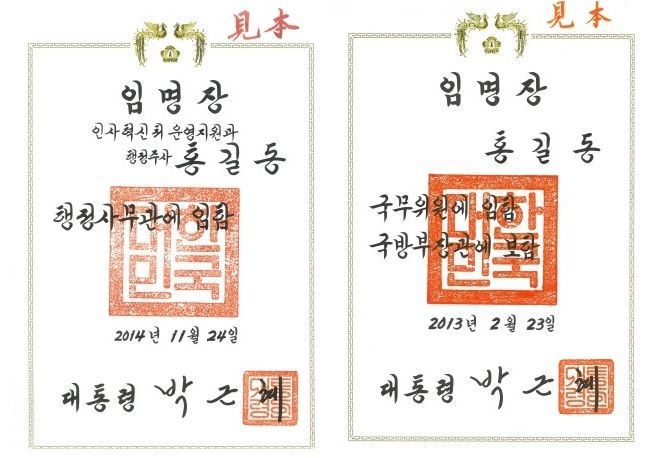 見本
임명장
인사혁신처 운영지원과
행정주사 홍길동
행정사무관에 임함
대한민국
2014년 11월 24일
대통령 박근혜
見本
임명장
홍길동
국무위원에 임함
국방부장관에 보함
대한민국
2013년 2월 23일
대통령 박근혜